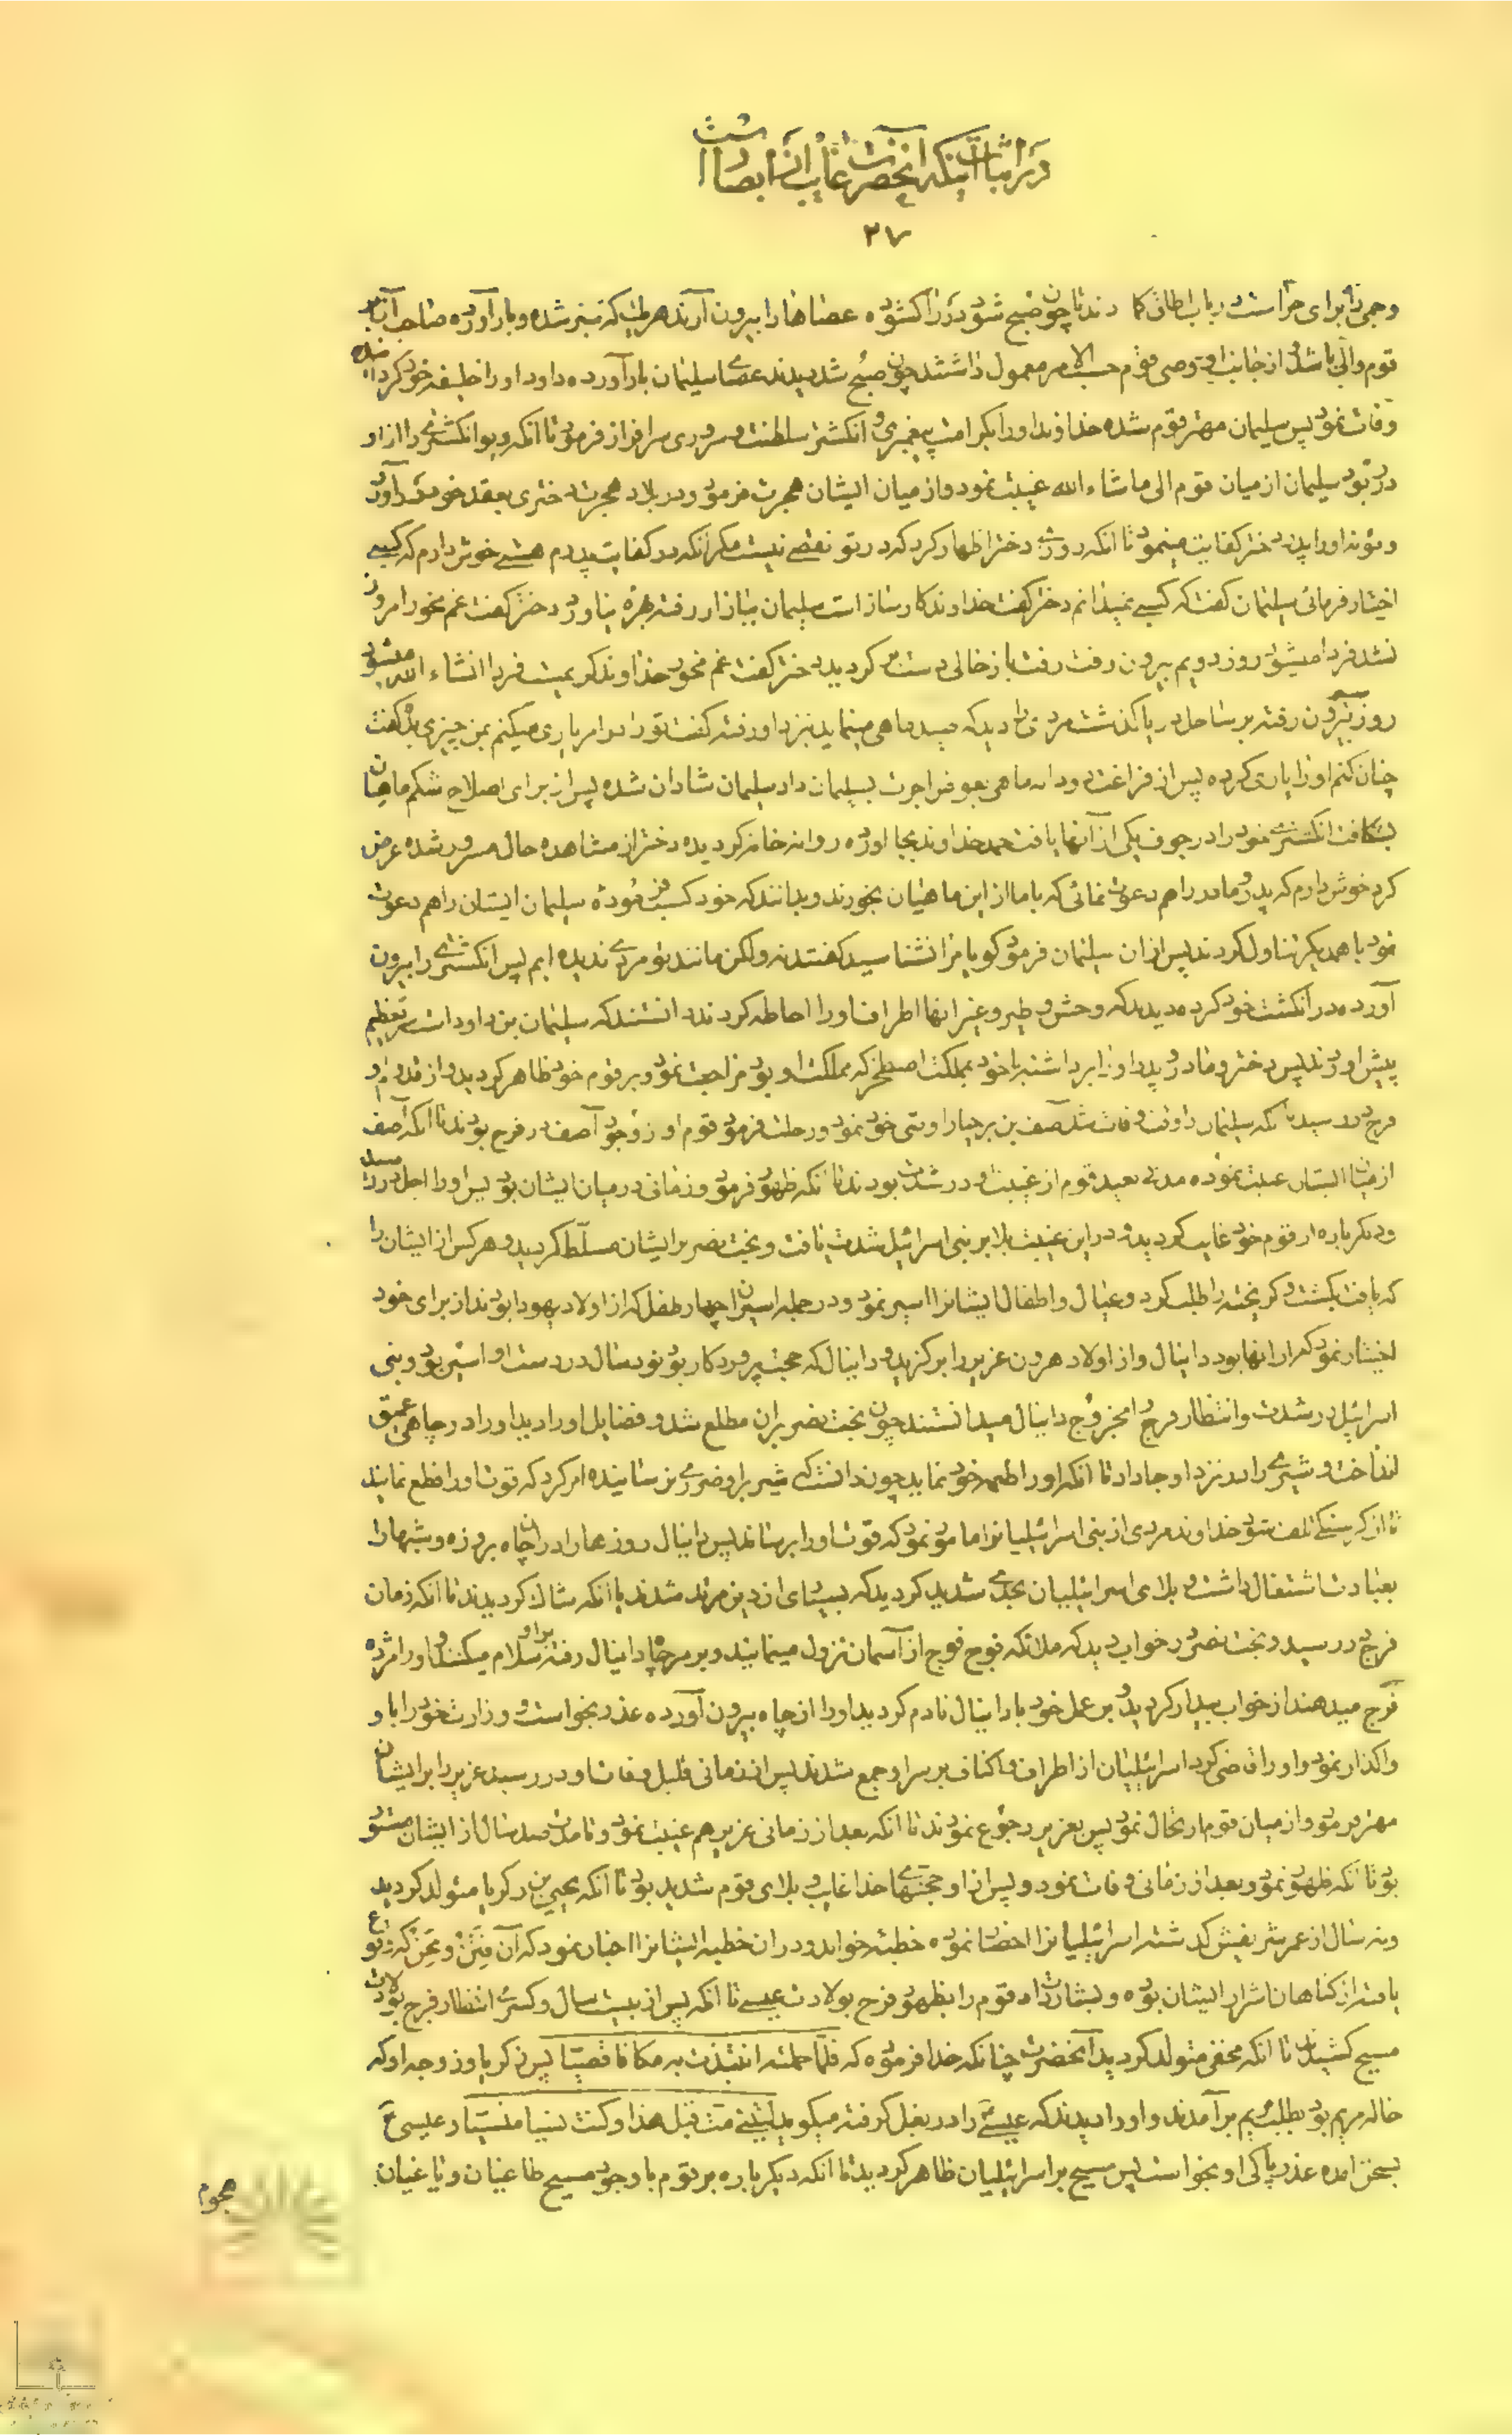 در اثبات اینکه آنحضرت غایب از ابصار است
۲۷
وجمی را برای حراست درباب اطاق کما دند تا چون صبح شود در را کشوده عصاها را بیرون آرند هریک که سبز شده و بار آورده صاحب آن
قوم والی باشد و از جانب او وصی قوم حسب الامر معمول داشتند چون صبح شد دیدند عصای سلیمان بار آورده داود او را خلیفه خود کرد
وفات نمود پس سلیمان مهتر قوم شده خداوند او را بکرامت پیغمبری و انکشتر سلطنت و سروری سرافراز فرمود تا آنکه دیو انکشتری را از او
در ربود سلیمان از میان قوم الی ماشاء الله غیبت نمود و از میان ایشان هجرت فرمود و در بلاد هجرت دختری بعقد خود در آورد
و مؤنه او را پدر دختر کفایت مینمود تا آنکه روزی دختر اظهار کرد که در تو نقصی نیست مکر آنکه در کفایت پدرم هستی خوش دارم که کسبی
اختیار فرمائی سلیمان کفت که کسبی نمیدانم دختر کفت خداوند کارساز است سلیمان ببازار رفته بهره نیاورد دختر کفت غم مخور امروز
نشد فردا میشود روز دویم بیرون رفت رفت باز خالی دست بر کردید دختر کفت غم مخور خداوند کریمست فردا انشاء الله میشود
روز سیم بیرون رفته بر ساحل دریا کذشت مردی را دید که صید ماهی مینماید نزد او رفته کفت تو را در امر یاری میکنم بمن چیزی بده کفت
چنان کنم او را یاری کرده پس از فراغت دو دانه ماهی بعوض اجرت بسلیمان داد سلیمان شادان شده پس از برای اصلاح شکم ماهیان
بشکافت انکشتری خود را در جوف یکی از آنها یافت حمد خداوند بجا آورده روانه خانه کردیده دختر از مشاهده حال مسرور شده عرض
کرد خوش دارم که پدر و مادر را هم دعوت نمائی که با ما از این ماهیان بخورند و بدانند که خود کسب فرموده سلیمان ایشان را هم دعوت
نمود با همدیکر تناول کردند پس از آن سلیمان فرمود کویا مرا نشناسید کفتند نه ولکن مانند تو مردی ندیده ایم پس انکشتری را بیرون
آورده در انکشت خود کرده دیدند که وحش و طیر و غیر آنها اطراف او را احاطه کردند دانستند که سلیمان بن داود است سر تعظیم
پیش آوردند پس دختر و مادر و پدر او را برداشته با خود بمملکت اصطخر که مملکت او بود مراجعت نمود و بر قوم خود ظاهر کردید و از قدم او
فرج در رسید تا آنکه سلیمان را وقت وفات شد آصف بن برخیا را وصی خود نمود و رحلت فرمود قوم او از وجود آصف در فرح بودند تا آنکه آصف
از میان ایشان غیبت نموده مدتی بعید قوم از غیبت او در شدت بودند تا آنکه ظهور فرمود و زمانی در میان ایشان بود پس او را اجل در رسید
و دیکر باره از قوم خود غایب کردید و در این غیبت بلا بر بنی اسرائیل شدت یافت و بخت نصر بر ایشان مسلّط کردید و هر کس از ایشان را
که یافت بکشت و کریخته را طلب کرد و عیال و اطفال ایشانرا اسیر نمود و در جمله اسیران چهار طفل که از اولاد یهودا بودند از برای خود
اختیار نمود که از آنها بود دانیال و از اولاد هرون عزیر را برکزید و دانیال که حجت پروردکار بود نود سال در دست او اسیر بود و بنی
اسرائیل در شدت و انتظار فرج را بخروج دانیال میدانستند چون بخت نصر بر آن مطلع شد و فضایل او را دید او را در چاهی عمیق
انداخت و شیری را در نزد او جا داد تا آنکه او را طعمه خود نماید چون دانست که شیر بر او ضرری نرساینده امر کرد که قوت او را قطع نمایند
تا از کرسنکی تلف شود خداوند مردی از بنی اسرائیلیانرا مامور نمود که قوت او را برساند پس دانیال روزها را در آن چاه بروزه و شبها را
بعبادت اشتغال داشت و بلای اسرائیلیان بحدی شدید کردید که بسیاری از دین مرتد شدند یا آنکه شاک کردیدند تا آنکه زمان
فرج در رسید و بخت نصر در خواب دید که ملائکه فوج فوج از آسمان نزول مینمایند و بر سر چاه دانیال رفته بر او سلام میکنند و او را مژده
فرج میدهند از خواب بیدار کردید و بر عمل خود با دانیال نادم کردید او را از چاه بیرون آورده عذر بخواست و وزارت خود را باو
واکذار نمود و او را قاضی کرد اسرائیلیان از اطراف و اکناف بر سر او جمع شدند پس از زمانی قلیل وفات او در رسید عزیر را بر ایشان
مهتر فرمود و از میان قوم ارتحال نمود پس بعزیر رجوع نمودند تا آنکه بعد از زمانی عزیر هم غیبت نمود و تا مدت صد سال از ایشان مستور
بود تا آنکه ظهور نمود و بعد از زمانی وفات نمود و پس از او حجتهای خدا غایب و بلای قوم شدید بود تا آنکه یحیی بن زکریا متولد کردید
و نه سال از عمر شریفش کذشته اسرائیلیانرا احضار نموده خطبه خواند و در آن خطبه ایشانرا اخبار نمود که آن فِتَنْ و مِحَنْ که
یافته از کناهان اشرار ایشان بوده و بشارت داد قوم را بظهور فرج بولادت عیسی تا آنکه پس از بیست سال و کسری انتظار فرج بولادت
مسیح کشیدن تا آنکه مخفی متولد کردید آنحضرت چنانکه خدا فرموده که فلمّا حملته انتبذت به مکانا قصیّا پس زکریا و زوجه او که
خاله مریم بود بطلب مریم برآمدند و او را دیدند که عیسی را در بغل کرفته میکوید لیتنی متّ قبل هذا و کنت نسیا منسیّا و عیسی ع
بسخن آمده عذر پاکی او بخواست پس مسیح بر اسرائیلیان ظاهر کردید تا آنکه دیکر باره بر قوم با وجود مسیح طاغیان و یاغیان
هجوم